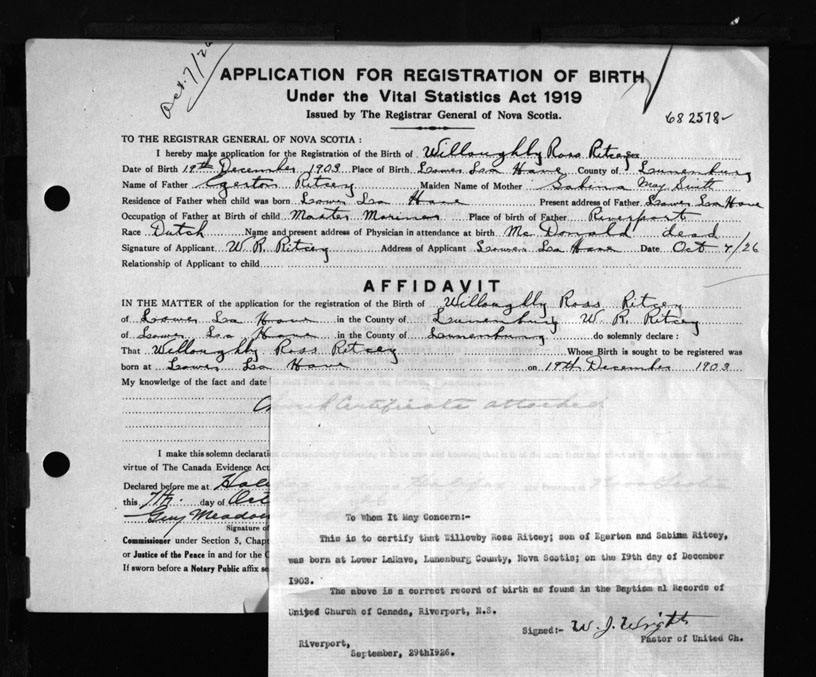 Oct. 7/26
APPLICATION FOR REGISTRATION OF BIRTH
Under the Vital Statistics Act 1919
Issued by The Registrar General of Nova Scotia.
682578
TO THE REGISTRAR GENERAL OF NOVA SCOTIA :
I hereby make application for the Registration of the Birth of Willoughby Ross Ritcey
Date of Birth 19th December 1903 Place of Birth Lower La Have County of Lunenburg
Name of Father Egerton Ritcey Maiden Name of Mother Sabina May Smith
Residence of Father when child was born Lower La Have Present address of Father Lower La Have
Occupation of Father at Birth of child Master Mariner Place of birth of Father Riverport
Race Dutch Name and present address of Physician in attendance at birth McDonald dead
Signature of Applicant W. R. Ritcey Address of Applicant Lower La Have Date Oct 7/26
Relationship of Applicant to child
AFFIDAVIT
IN THE MATTER of the application for the registration of the Birth of Willoughby Ross Ritcey
of Lower La Have in the County of Lunenburg W. R. Ritcey
of Lower La Have in the County of Lunenburg do solemnly declare :
That Willoughby Ross Ritcey Whose Birth is sought to be registered was
born at Lower La Have on 19th December 1903
My knowledge of the fact and date
Church Certificate attached
I make this solemn declarati
virtue of The Canada Evidence Act
Declared before me at Halifax Halifax Nova Scotia
this 7th day of Oct
Guy Meadows
Signature of
Commissioner under Section 5, Chapt
or Justice of the Peace in and for the C
If sworn before a Notary Public affix se
To Whom It May Concern:-
This is to certify that Willowby Ross Ritcey; son of Egerton and Sabina Ritcey,
was born at Lower LaHave, Lunenburg County, Nova Scotia; on the 19th day of December
1903.
The above is a correct record of birth as found in the Baptismal Records of
United Church of Canada, Riverport, N.S.
Signed:- W. J. Wright
Pastor of United Ch.
Riverport,
September, 29th1926.